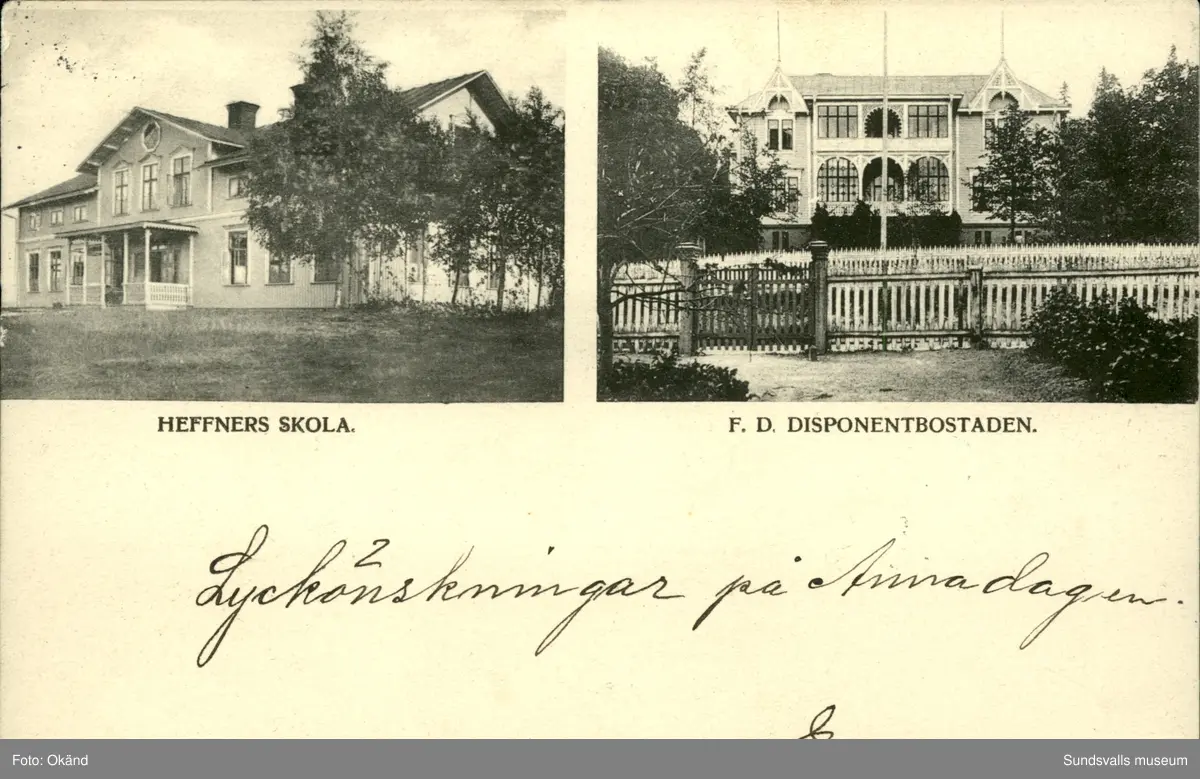 HEFFNERS SKOLA.
F. D. DISPONENTBOSTADEN.
Lyckönskningar på Annadagen.
Foto: Okänd
Sundsvalls museum